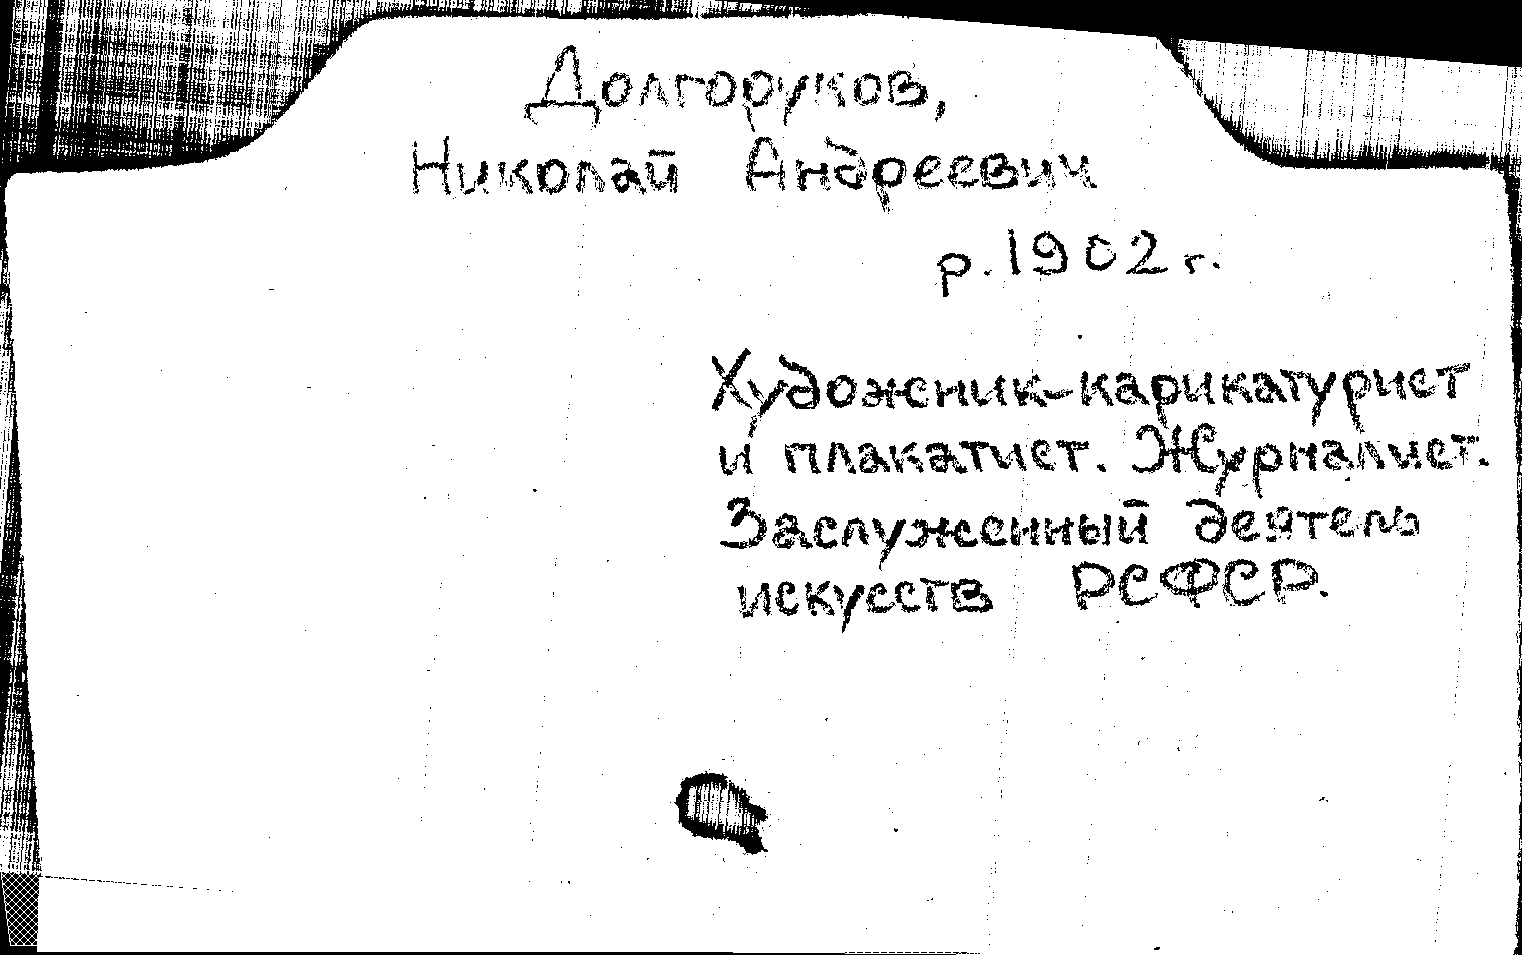 Долгоруков,
Николай Андреевич
р. 1902 г.
Художник-карикатурист
и плакатист. Журналист.
Заслуженный деятель
искусств РСФСР.